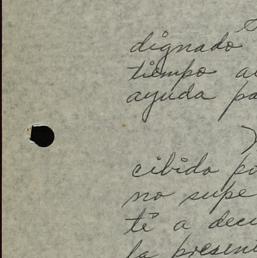 dignado
tiempo a
ayuda pa
cibido po
no supe
té a deci
la presen